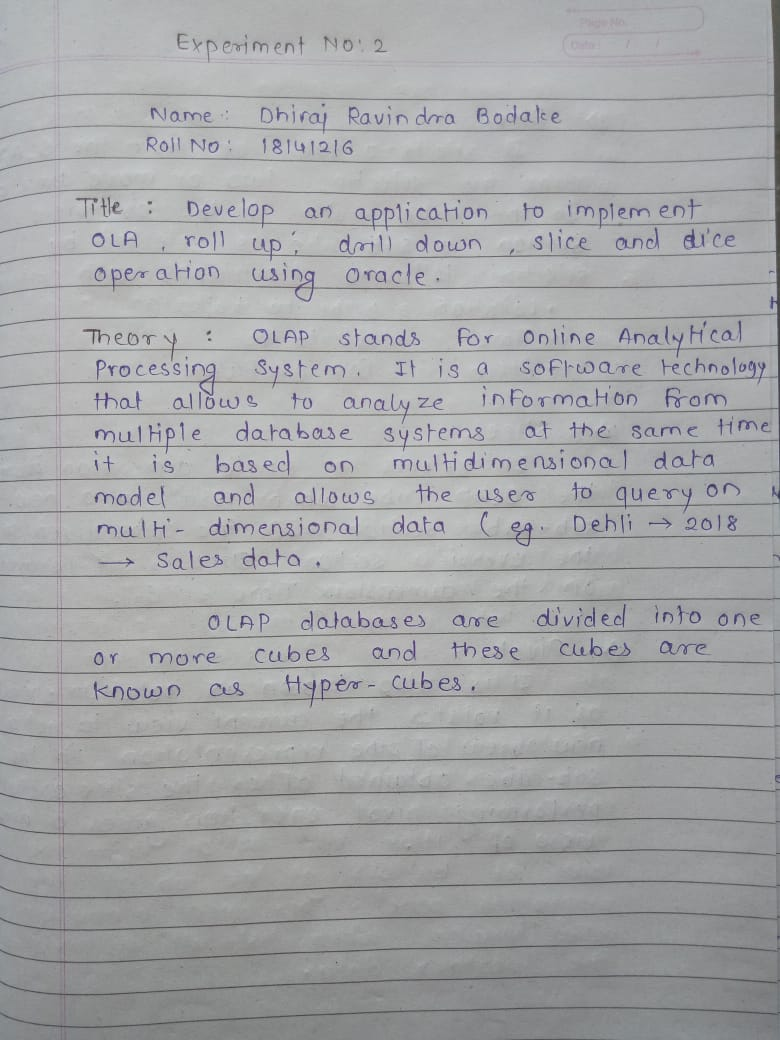 Page No.
Date : / /
Experiment No: 2
Name : Dhiraj Ravindra Bodake
Roll No : 18141216
Title : Develop an application to implement
OLA , roll up , drill down , slice and dice
operation using oracle .
Theory : OLAP stands for Online Analytical
Processing System . It is a software technology
that allows to analyze information from
multiple database systems at the same time
it is based on multidimensional data
model and allows the user to query on
multi - dimensional data ( eg. Dehli → 2018
→ Sales data .
OLAP databases are divided into one
or more cubes and these cubes are
known as Hyper - cubes .